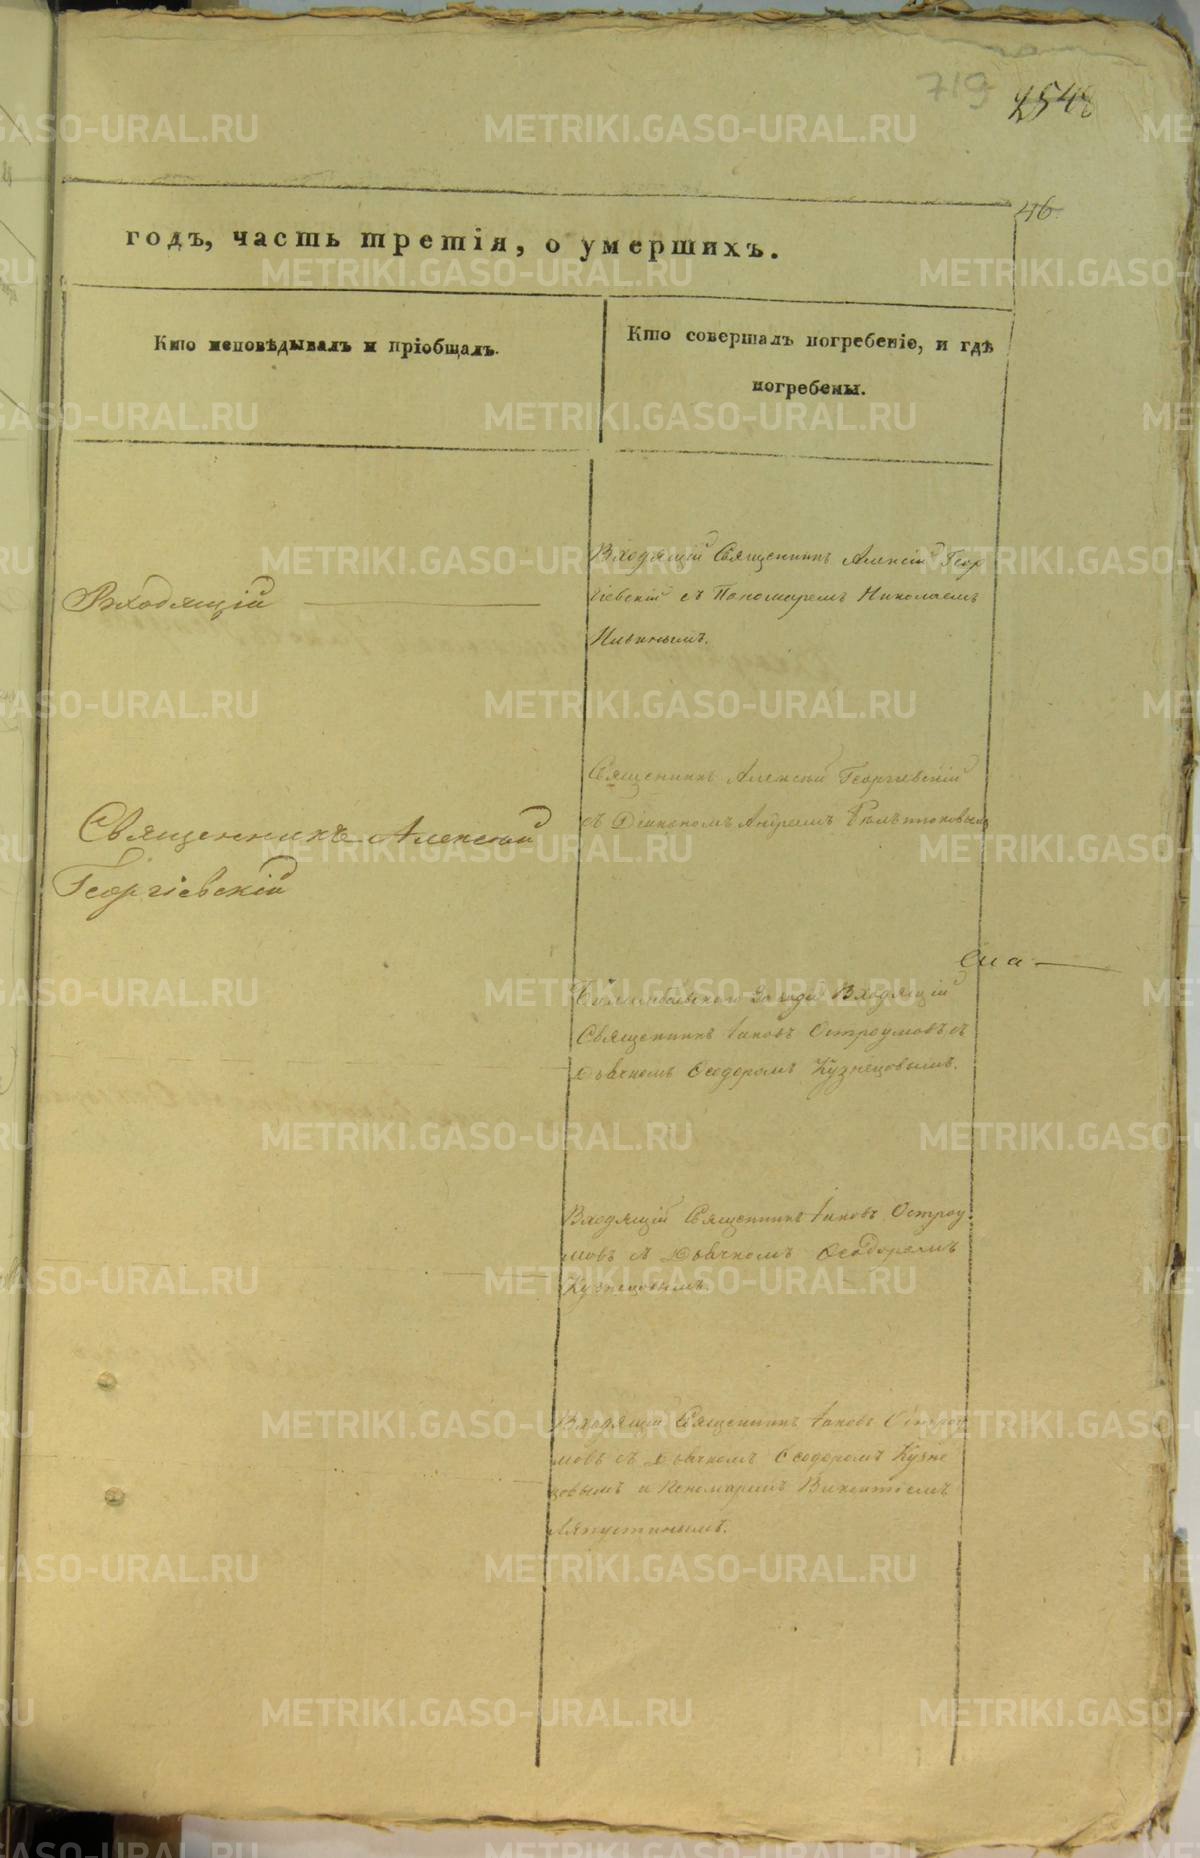 719
2548
46
годъ, часть третія, о умершихъ.
Кто исповѣдывалъ и пріобщалъ.
Кто совершалъ погребеніе, и гдѣ
погребены.
Входящій
Входящій Священникъ Алексій Геор
гіевскій съ Пономаремъ Николаемъ
Священникъ Алексій
Георгіевскій
Священникъ Алексій Георгіевскій
съ Діакономъ Андреемъ
Билимбаевскаго Завода Входящій
Священникъ Іаковъ Остроумовъ съ
Дьячкомъ Ѳеодоромъ Кузнецовымъ.
Входящій Священникъ Іаковъ Остроу
мовъ съ Дьячкомъ Ѳеодоромъ
Кузнецовымъ.
Входящій Священникъ Іаковъ Остроу
мовъ съ Дьячкомъ Ѳеодоромъ Кузне
цовымъ и Пономаремъ Викентіемъ
Ляпустинымъ.
METRIKI.GASO-URAL.RU